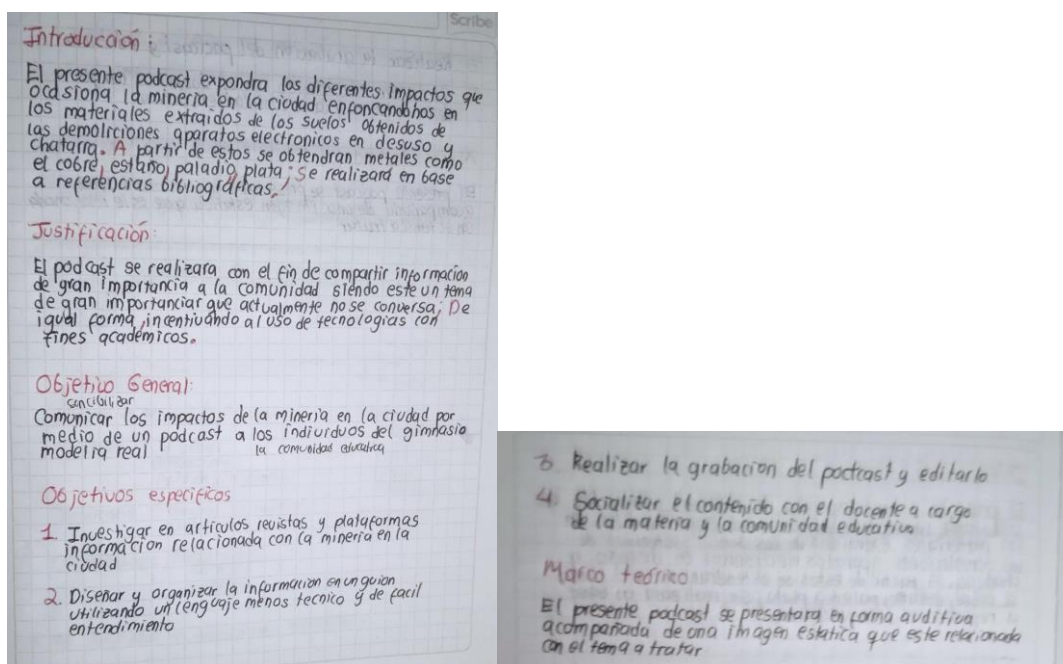 Scribe
Introducción:
El presente podcast expondra los diferentes impactos que
ocasiona la mineria en la ciudad enfoncandonos en
los materiales extraidos de los suelos obtenidos de
las demolirciones aparatos electronicos en desuso y
chatarra. A partir de estos se obtendran metales como
el cobre, estaño, paladio, plata; Se realizará en base
a referencias bibliográficas.
Justificación:
El podcast se realizara con el fin de compartir informacion
de gran importancia a la comunidad siendo este un tema
de gran importanciar que actualmente no se conversa; De
igual forma, incentivando al uso de tecnologias con
fines académicos.
Objetivo General:
sencibilizar
Comunicar los impactos de la mineria en la ciudad por
medio de un podcast a los individuos del gimnasio
modelia real la comunidad educativa
Objetivos especificos
1 Investigar en articulos revistas y plataformas
informacion relacionada con la mineria en la
ciudad
2. Diseñar y organizar la informacion en un guion
utilizando un lenguaje menos tecnico y de facil
entendimiento
3 Realizar la grabacion del podcast y editarlo
4. Socializar el contenido con el docente a cargo
de la materia y la comunidad educativa
Marco teórico
El presente podcast se presentara en forma auditiva
acompañada de una imagen estatica que este relacionada
con el tema a tratar